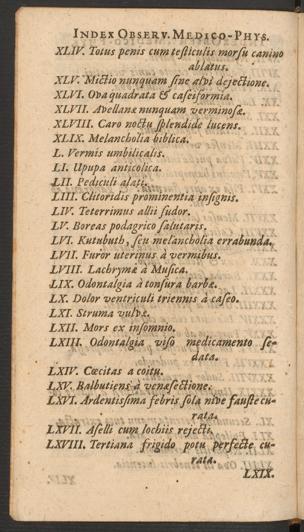 INDEX OBSERV. MEDICO-PHYS.
XLIV. Totus penis cum testiculis morsu canino
ablatus.
XLV. Mictio nunquam sine alvi dejectione.
XLVI. Ova quadrata & caseiformia.
XLVII. Avellanæ nunquam verminosæ.
XLVIII. Caro noctu splendide lucens.
XLIX. Melancholia biblica.
L. Vermis umbilicalis.
LI. Upupa anticolica.
LII. Pediculi alati.
LIII. Clitoridis prominentia insignis.
LIV. Teterrimus allii sudor.
LV. Boreas podagrico salutaris.
LVI. Kutubuth, seu melancholia errabunda.
LVII. Furor uterinus à vermibus.
LVIII. Lachrymæ à Musica.
LIX. Odontalgia à tonsura barbæ.
LX. Dolor ventriculi triennis à caseo.
LXI. Struma vulvæ.
LXII. Mors ex insomnio.
LXIII. Odontalgia viso medicamento se-
data.
LXIV. Cœcitas a coitu.
LXV. Balbutiens à venæsectione.
LXVI. Ardentissima febris sola nive fauste cu-
rata.
LXVII. Aselli cum lochiis rejecti.
LXVIII. Tertiana frigido potu perfecte cu-
rata.
LXIX.